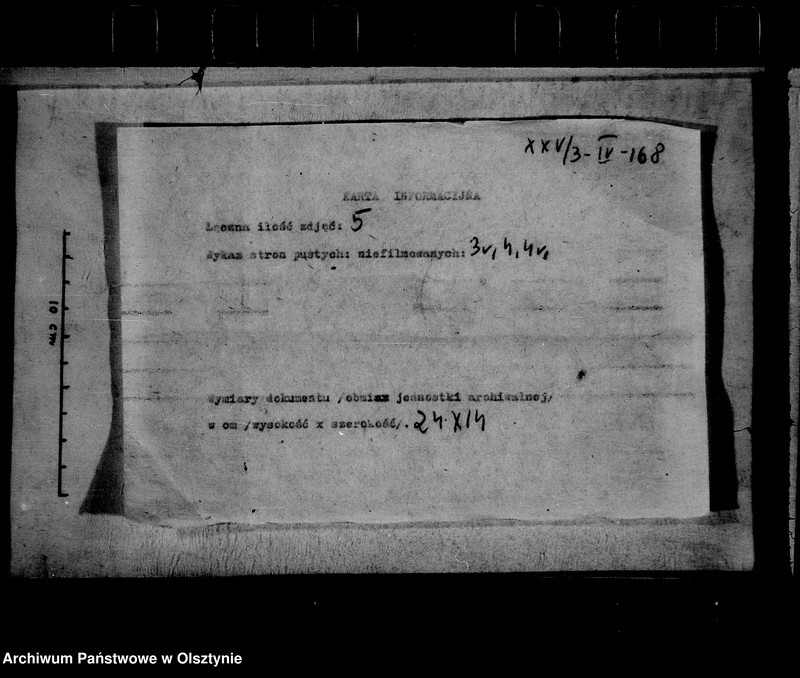 XXV/3-IV-168
KARTA INFORMACYJNA
Łączna ilość zdjęć: 5
Wykaz stron pustych: niefilmowanych: 3v, 4, 4v,
Wymiary dokumentu /obmiar jednostki archiwalnej/
w cm /wysokość x szerokość/. 24 X 14
10 cm
Archiwum Państwowe w Olsztynie